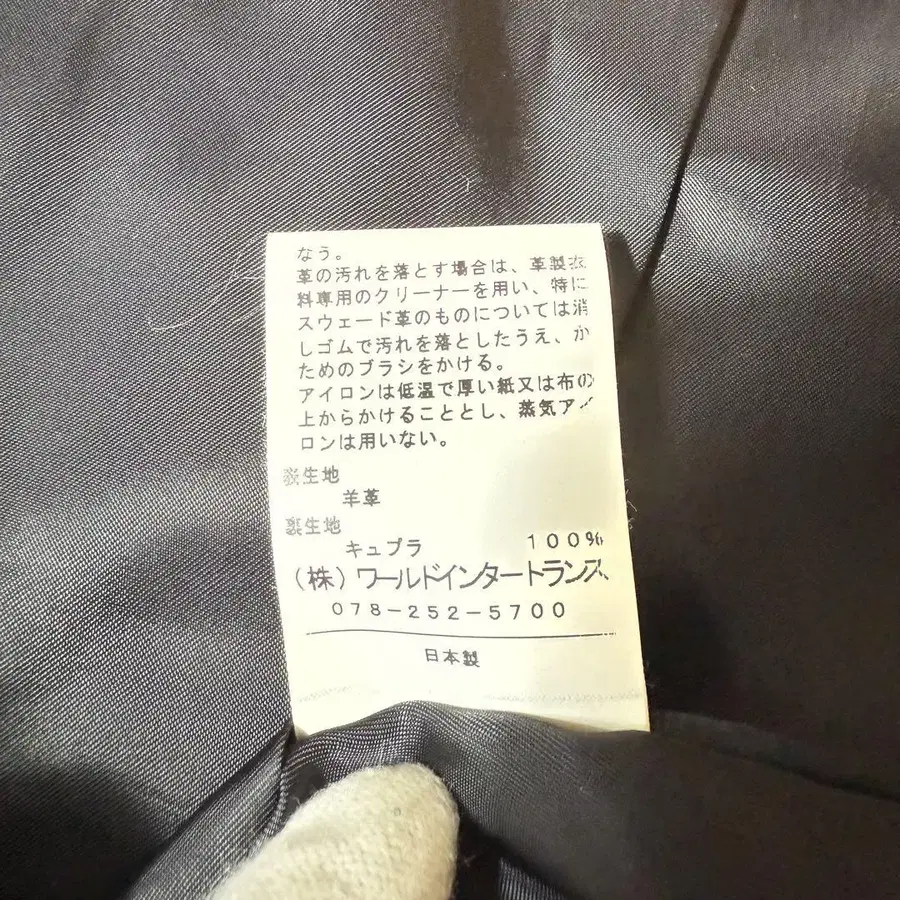 なう。
革の汚れを落とす場合は、革製衣
料専用のクリーナーを用い、特に
スウェード革のものについては消
しゴムで汚れを落としたうえ、か
ためのブラシをかける。
アイロンは低温で厚い紙又は布の
上からかけることとし、蒸気アイ
ロンは用いない。
表生地
羊革
裏生地
キュプラ 100%
(株)ワールドインタートランス
078-252-5700
日本製